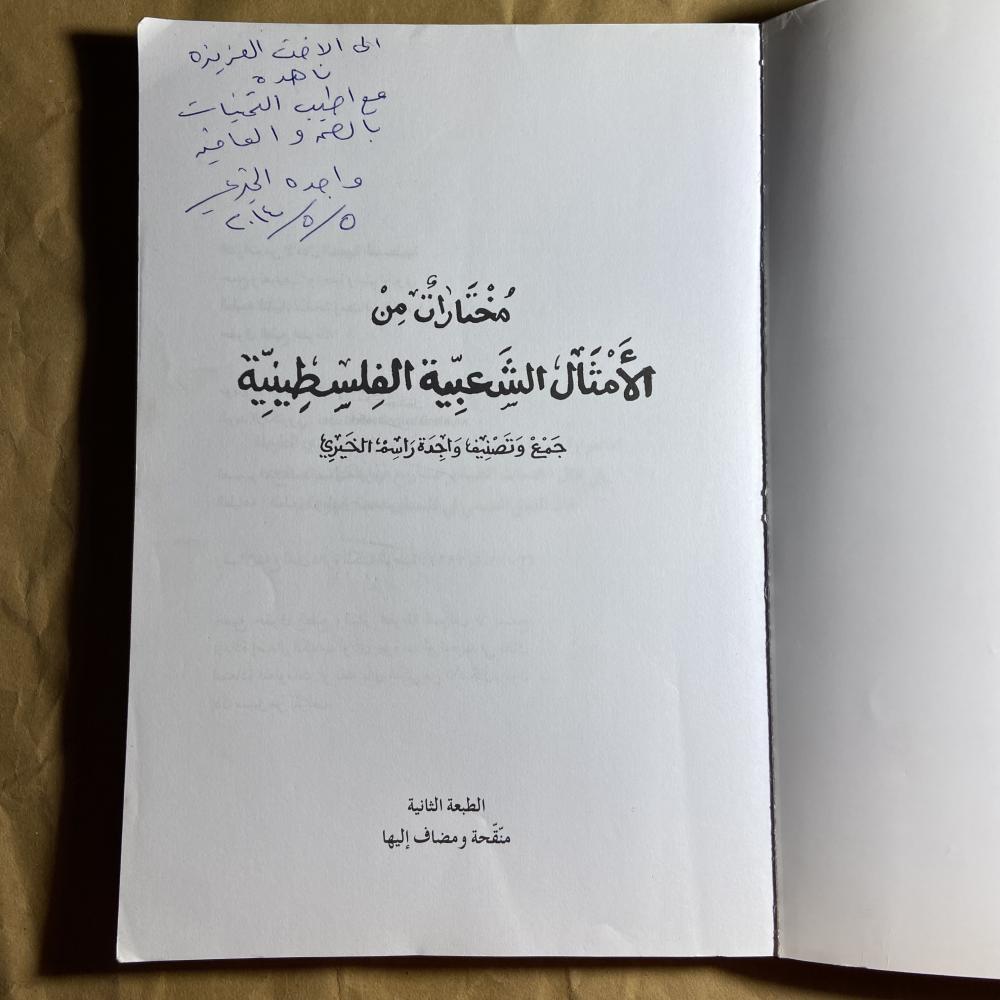 الى الاخت العزيزه
ناهده
مع اطيب التمنيات
بالصحه و العافيه
واجده الخيري
٢٠١٤/٥/٥
مُخْتَارَاتٌ مِنْ
الأَمْثَال الشَّعبِيّة الفِلِسْطِينِيّة
جَمْعْ وَتَصْنِيف وَاجِدَة رَاسِمْ الخَيْرِي
الطبعة الثانية
منقّحة ومضاف إليها